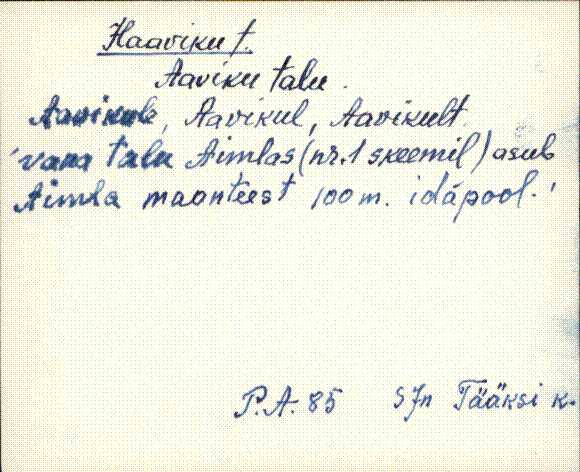 Haaviku t.
Aaviku talu.
Aavikule, Aavikul, Aavikult
'vana talu Aimlas (nr.1 skeemil) asub
Aimla maanteest 100 m. idapool.'
P.A. 85 SJn Tääksi k.